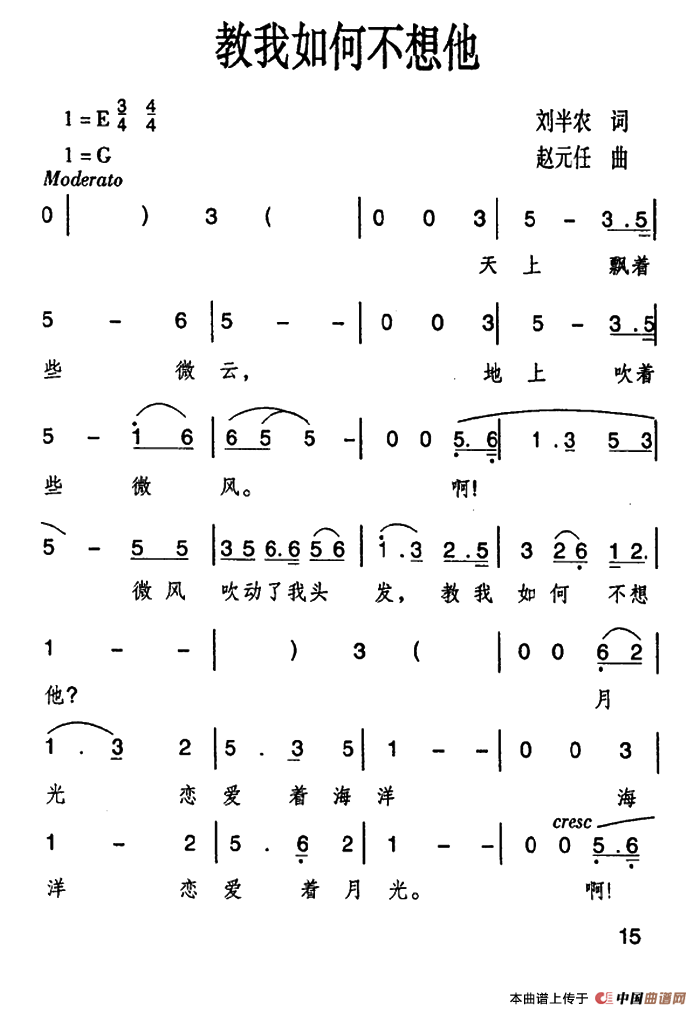 教我如何不想他
1=E 3/4 4/4
刘半农 词
1=G
赵元任 曲
Moderato
0 | ) 3 ( | 0 0 3 | 5 - 3.5 |
天 上 飘着
5 - 6 | 5 - - | 0 0 3 | 5 - 3.5 |
些 微 云, 地 上 吹着
5 - 1 6 | 6 5 5 - | 0 0 5.6 | 1.3 5 3 |
些 微 风。 啊!
5 - 5 5 | 3 5 6.6 5 6 | 1.3 2.5 | 3 2 6 1 2. |
微 风 吹动了我头 发, 教 我 如 何 不 想
1 - - | ) 3 ( | 0 0 6 2 |
他? 月
1 . 3 2 | 5 . 3 5 | 1 - - | 0 0 3 |
光 恋 爱 着 海 洋 海
cresc
1 - 2 | 5 . 6 2 | 1 - - | 0 0 5.6 |
洋 恋 爱 着 月 光。 啊!
15
本曲谱上传于 中国曲谱网